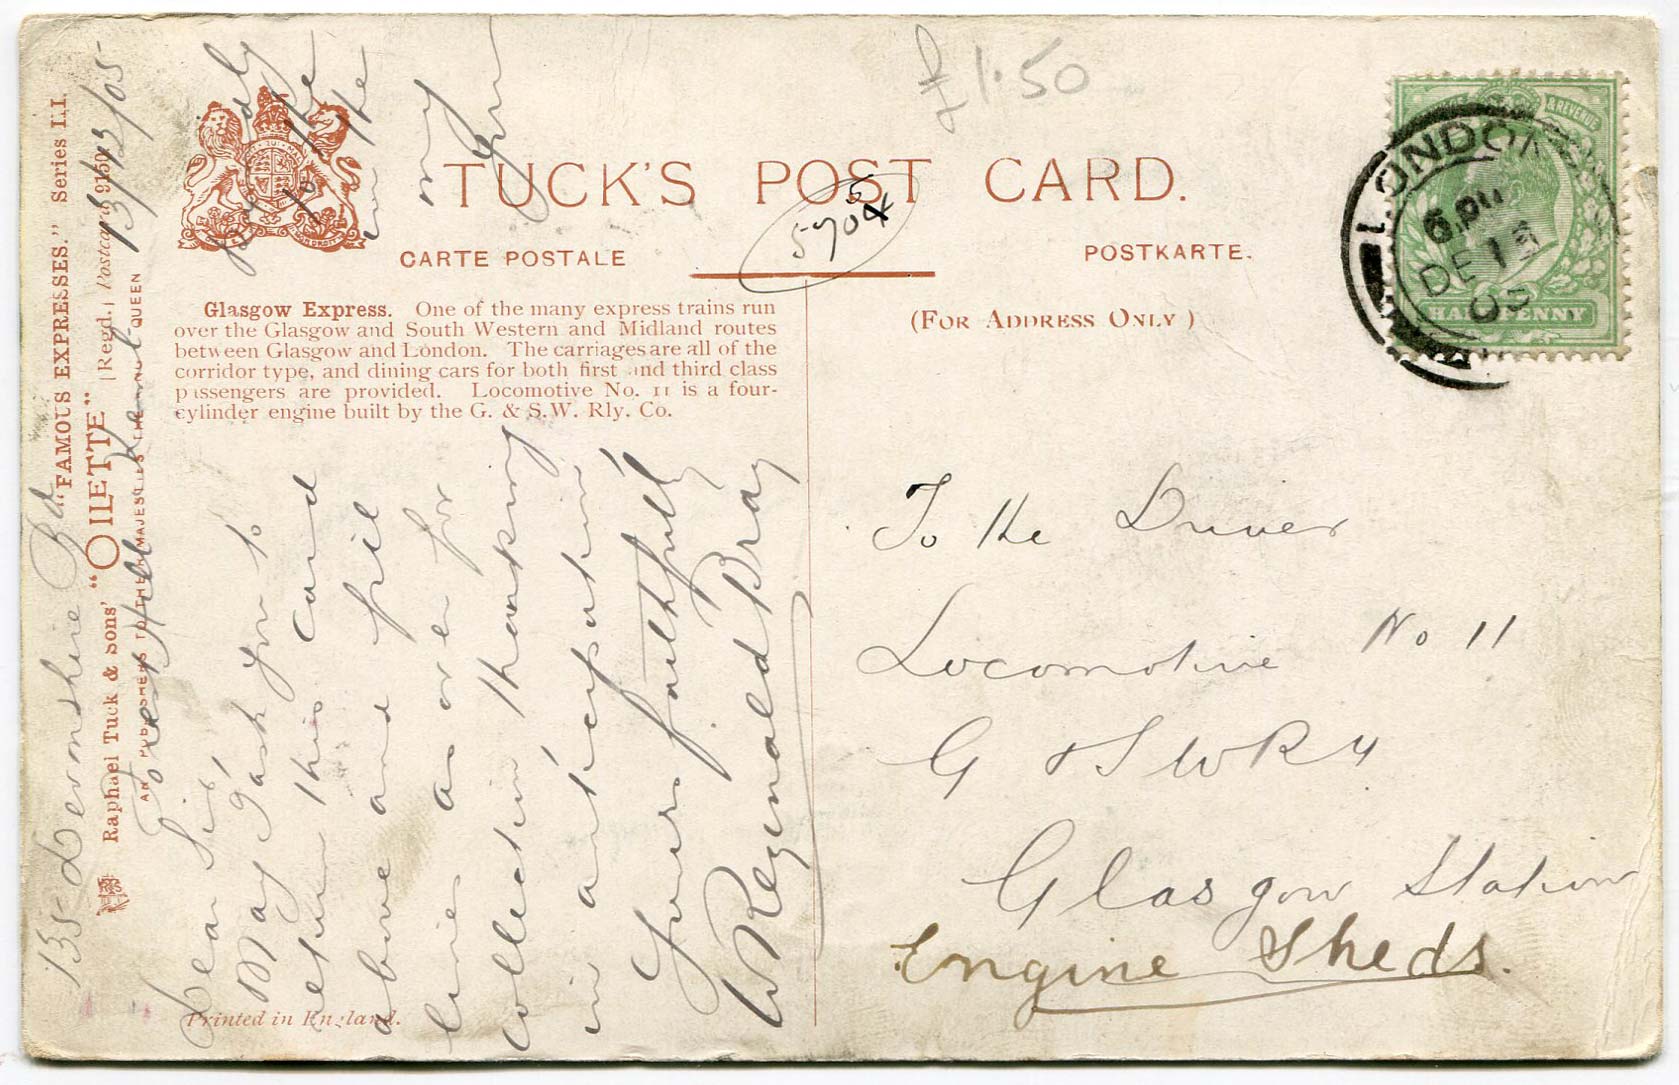 £1.50
TUCK'S POST CARD.
CARTE POSTALE
POSTKARTE.
(FOR ADDRESS ONLY)
5704
5
LONDON
6 PM
DE 13
05
& REVENUE
HALFPENNY
Glasgow Express. One of the many express trains run
over the Glasgow and South Western and Midland routes
between Glasgow and London. The carriages are all of the
corridor type, and dining cars for both first and third class
passengers are provided. Locomotive No. 11 is a four-
cylinder engine built by the G. & S.W. Rly. Co.
"FAMOUS EXPRESSES." Series II.
Raphael Tuck & Sons' "OILETTE" [Regd.] Postcard 9150
AN PUBLISHERS TO THEIR MAJESTIES THE QUEEN
Printed in England.
135 Devonshire Rd
Forest Hill Kent 13/12/05
Dear Sir,
May I ask you to kindly
return this card to me
above and fill in the
lines as over for my
collection thanking you
in anticipation
Yours faithfully
W Reginald Bray
To the Driver
Locomotive No 11
G & S W R y
Glasgow Station
Engine Sheds.